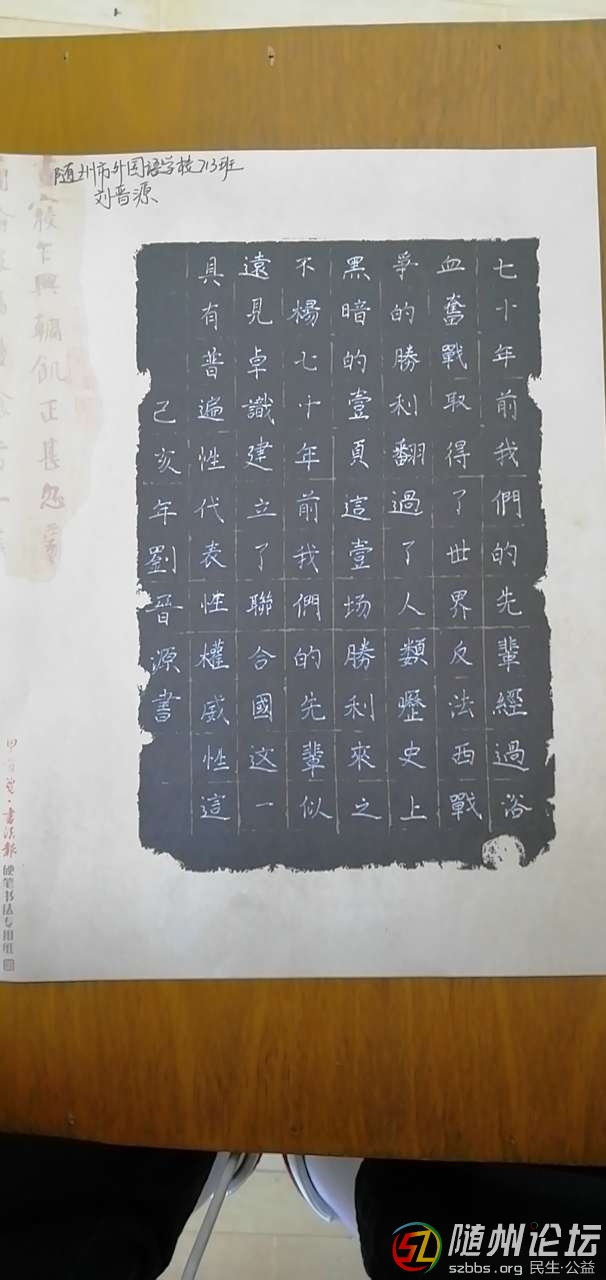 随州市外国语学校713班
刘晋源
七十年前我們的先輩經過浴
血奮戰取得了世界反法西戰
爭的勝利翻過了人類歷史上
黑暗的壹頁這壹场勝利來之
不楊七十年前我們的先輩似
遠見卓識建立了聯合國这一
具有普遍性代表性權威性這
己亥年劉晉源書
乍興輖飢正甚忽
書法報
硬笔书法专用纸
随州论坛
szbbs.org 民生·公益